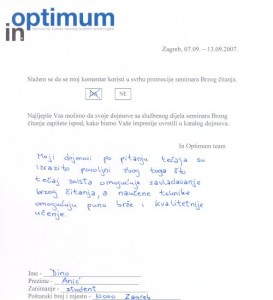 in optimum
Zagreb, 07.09. – 13.09.2007.
Slažem se da se moj komentar koristi u svrhu promocije seminara Brzog čitanja.
DA NE
Najljepše Vas molimo da svoje dojmove sa službenog dijela seminara Brzog
čitanja zapišete ispod, kako bismo Vaše impresije uvrstili u katalog dojmova.
In Optimum team
Moji dojmovi po pitanju tečaja su
izrazito povoljni zbog toga što
tečaj zaista omogućuje savladavanje
brzog čitanja, a naučene tehnike
omogućuju puno brže i kvalitetnije
učenje.
Ime - Dino
Prezime - Anić
Zanimanje - student
Poštanski broj i mjesto - Novo Zagreb